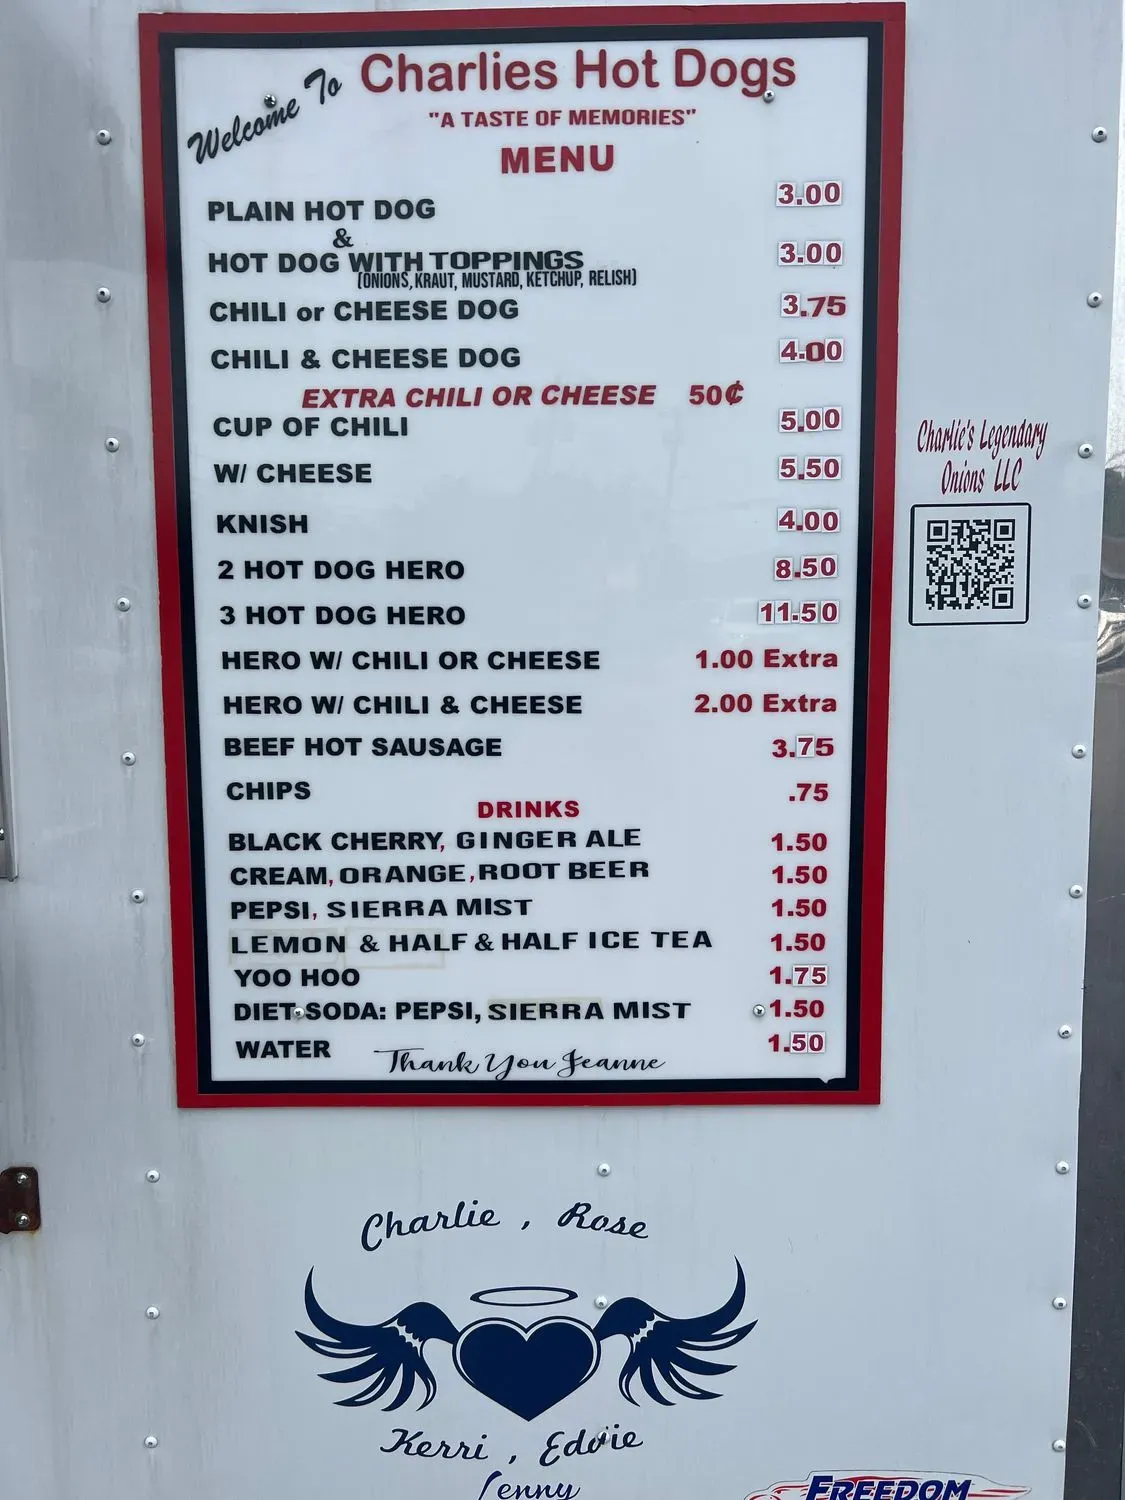 Welcome To Charlies Hot Dogs
"A TASTE OF MEMORIES"
MENU
PLAIN HOT DOG 3.00
&
HOT DOG WITH TOPPINGS 3.00
(ONIONS, KRAUT, MUSTARD, KETCHUP, RELISH)
CHILI or CHEESE DOG 3.75
CHILI & CHEESE DOG 4.00
EXTRA CHILI OR CHEESE 50¢
CUP OF CHILI 5.00
W/ CHEESE 5.50
KNISH 4.00
2 HOT DOG HERO 8.50
3 HOT DOG HERO 11.50
HERO W/ CHILI OR CHEESE 1.00 Extra
HERO W/ CHILI & CHEESE 2.00 Extra
BEEF HOT SAUSAGE 3.75
CHIPS .75
DRINKS
BLACK CHERRY, GINGER ALE 1.50
CREAM, ORANGE, ROOT BEER 1.50
PEPSI, SIERRA MIST 1.50
LEMON & HALF & HALF ICE TEA 1.50
YOO HOO 1.75
DIET SODA: PEPSI, SIERRA MIST 1.50
WATER 1.50
Thank You Jeanne
Charlie's Legendary
Onions LLC
Charlie, Rose
Kerri, Edvie
Lenny
FREEDOM